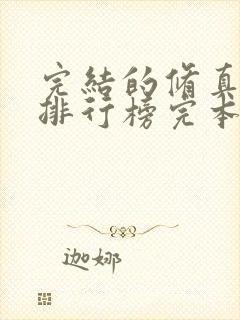 完結的脩真
排行榜完本
迦娜